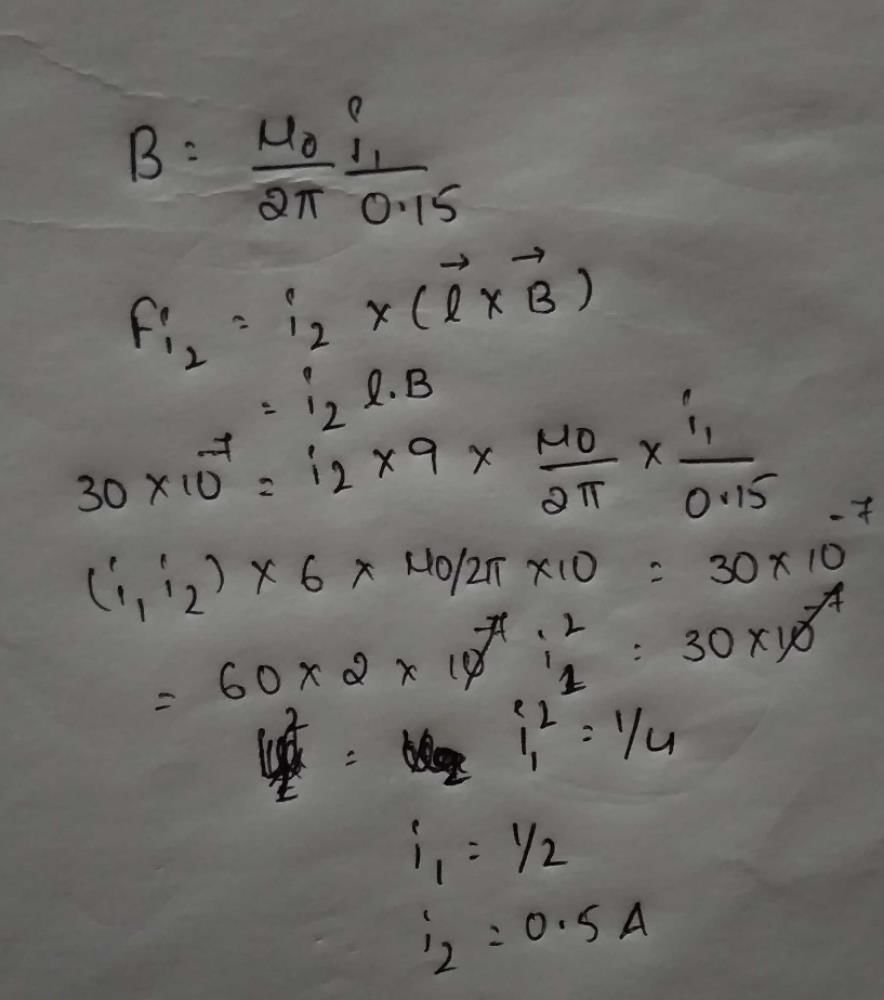 B = μ₀/2π i₁/0.15
Fi₂ = i₂ × (l⃗ × B⃗)
= i₂ l.B
30 × 10⁻⁷ = i₂ × 9 × μ₀/2π × i₁/0.15
(i₁ i₂) × 6 × μ₀/2π × 10 = 30 × 10⁻⁷
= 60 × 2 × 10⁻⁷ i₁² = 30 × 10⁻⁷
= i₁² = 1/4
i₁ = 1/2
i₂ = 0.5 A